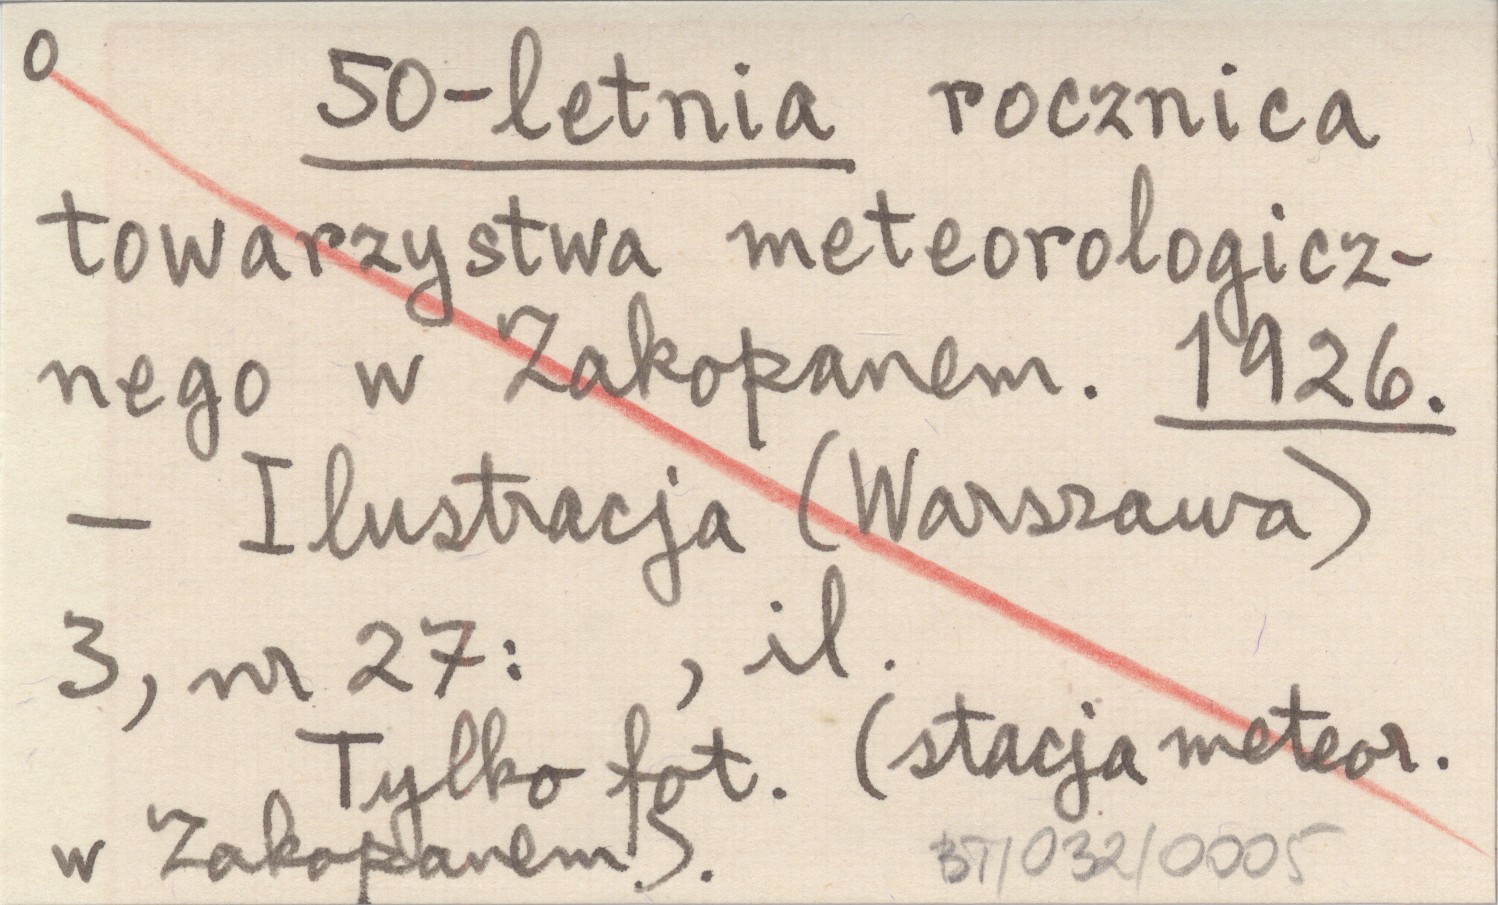 0
50-letnia rocznica
towarzystwa meteorologicz-
nego w Zakopanem. 1926.
– Ilustracja (Warszawa)
3, nr 27: , il.
Tylko fot. (stacja meteor.
w Zakopanem).
BT/032/0005